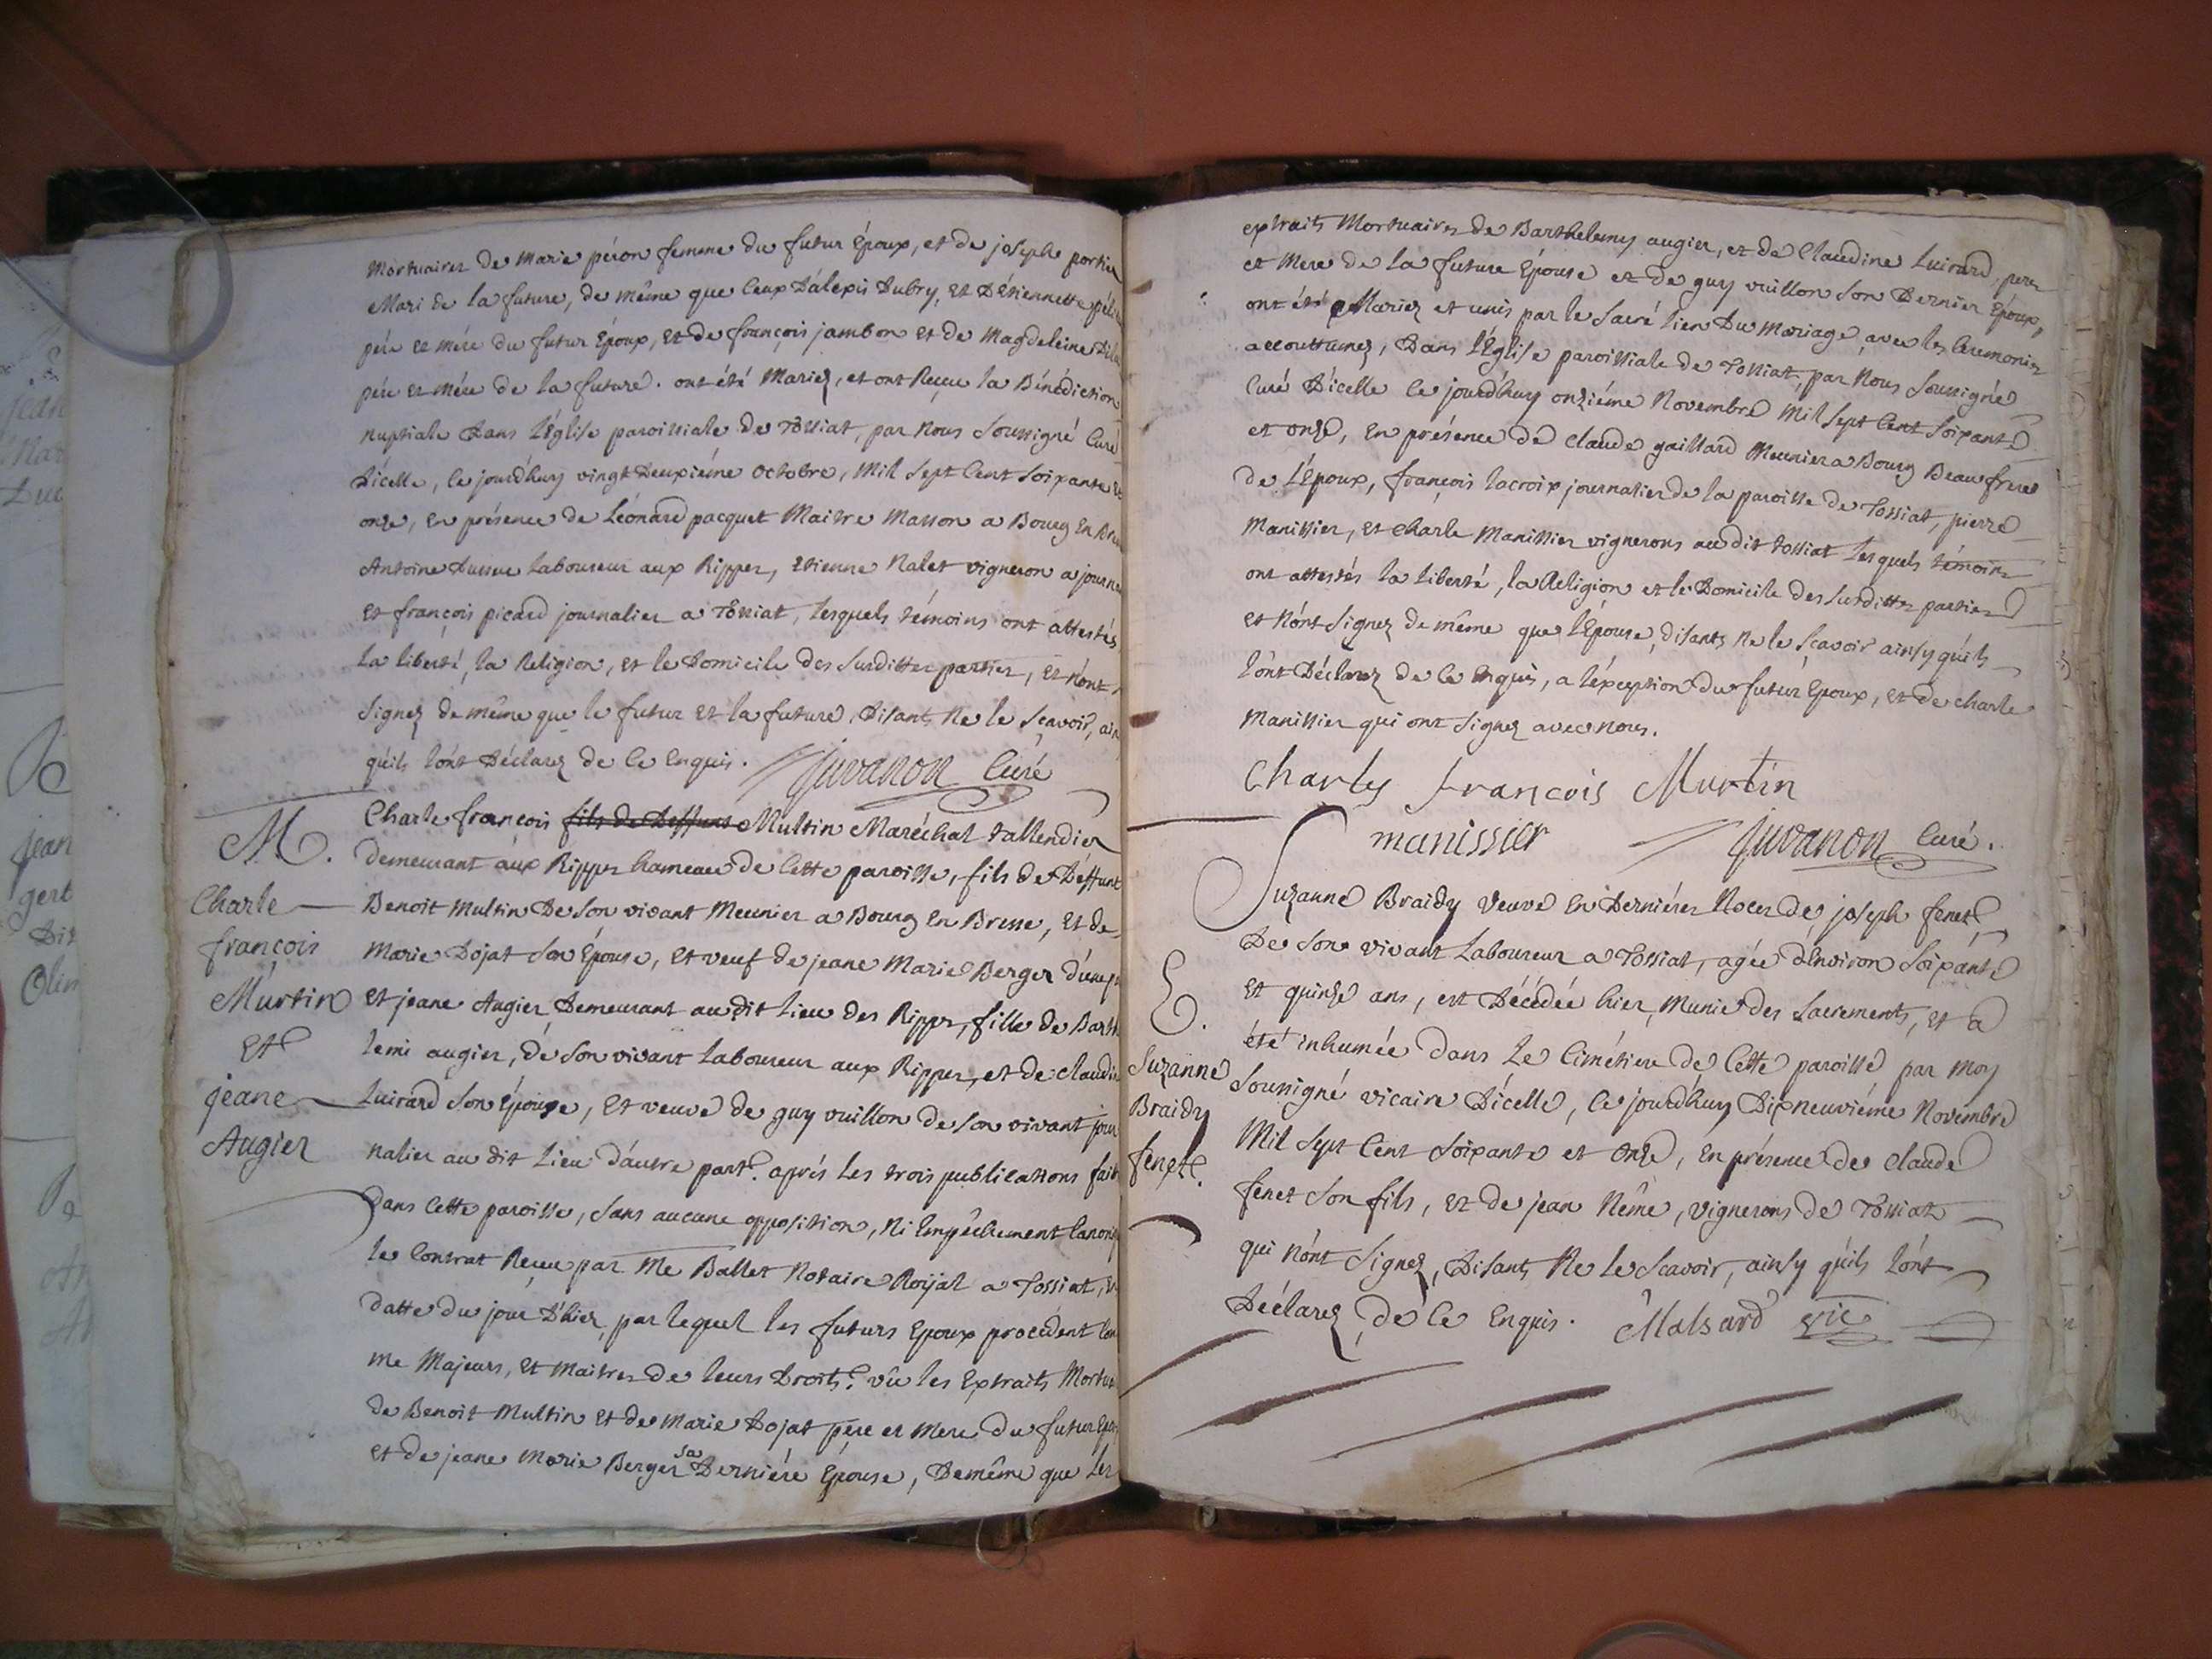 mortuaires de marie péron femme du futur Époux, et de joseph portier
Mari de la future, de même que ceux D'álexis Dubry, et D'Étiennette
pére et mére du futur Époux, et de françois jambon et de Magdeleine
pére et mére de la future. ont été Mariez, et ont Reçeu la Bénédiction
nuptiale Dans l'Église paroissiale de Tossiat, par Nous Soussigné Curé
D'icelle, ce jourd'huy vingt Deuxiéme Octobre, Mil Sept Cent Soixante et
onze, en présence de Léonard pacquet Maitre Masson a Bourg En
Antoine Laboureur aux Rippes, etienne Nalet vigneron a
et françois picard journalier a Tossiat, lesquels témoins ont attestés
la liberté, la Religion, et le Domicile des Surdittes parties, et n'ont
Signez de même que le futur et la future, Disants Ne le Sçavoir,
qu'ils l'ónt Déclarez de Ce Enquis. Juvanon Curé
M.
Charle
françois
Murtin
Et
jeane
Augier
Charle françois fils de Deffunt Multin Maréchal tallendier
demeurant aux Rippes hameau de Cette paroisse, fils de Déffunt
Benoit Multin De Son vivant Meunier a Bourg En Bresse, Et de
Marie Dojat Son Épouse, Et veuf de jeane Marie Berger d'une
et jeane Augier Demeurant au dit Lieu des Rippes, fille de Barth
lemi augier, de Son vivant Laboureur aux Rippes, et de
Luirard Son Épouse, Et veuve de guy vuillon de Son vivant jour
nalier au dit Lieu d'áutre part. aprés les trois publications
Dans Cette paroisse, Sans aucune opposition, Ni Empêchement
le Contrat Reçeu par Me Ballet Notaire Royal a Tossiat,
datte du jour D'hier, par lequel les futurs Époux procédent Com
me Majeurs, Et Maitres de leurs Droits. vû les Extraits
de Benoit Multin et de Marie Dojat pere et Mere du futur
et de jeane Marie Berger sa Derniére Épouse, Demême que les
extraits Mortuaires de Barthelemy augier, et de Claudine Luirard, pere
et Mere de la future Épouse et de guy vuillon Son Dernier Époux,
ont été Mariez et unis par le Sacré lien Du Mariage avec les Ceremonies
accouttumez, Dans l'Église paroissiale de Tossiat, par Nous Soussigné
Curé D'icelle Ce jourd'huy onziéme Novembre Mil Sept Cent Soixante
et onze, En présence de Claude gaillard Meunier a Bourg Beaufrere
de l'Époux, françois lacroix journalier de la paroisse de Tossiat, pierre
Manissier, et Charle Manissier vignerons au dit tossiat Lesquels témoins
ont attestés la liberté, la Religion et le Domicile des Surdittes parties
et N'ónt Signez de même que l'Epouse, Disants Ne le Scavoir ainsy qu'ils
l'ónt Déclarez de Ce Enquis, a l'éxception du futur Epoux, et de Charle
Manissier qui ont Signez avec nous.
Charles françois Murtin
manissier Juvanon Curé.
E.
Suzanne
Braidy
fenet.
Suzanne Braidy Veuve En Derniéres Noces de joseph fenet
De Son vivant Laboureur a Tossiat, agée d'Environ Soixante
Et quinze ans, est Décédée hier, Munie des Sacrements, et a
été inhumée dans Le Cimétiere de Cette paroisse par moy
Soussigné vicaire D'icelle, Ce jourd'huy Dix neuviéme Novembre
Mil Sept Cent Soixante et Onze, En présence de Claude
fenet Son fils, et de jean Nême, vignerons de Tossiat
qui n'ónt Signez, Disants Ne Le Scavoir, ainsy qu'ils l'ónt
Déclarez, de Ce Enquis. Malsard vic